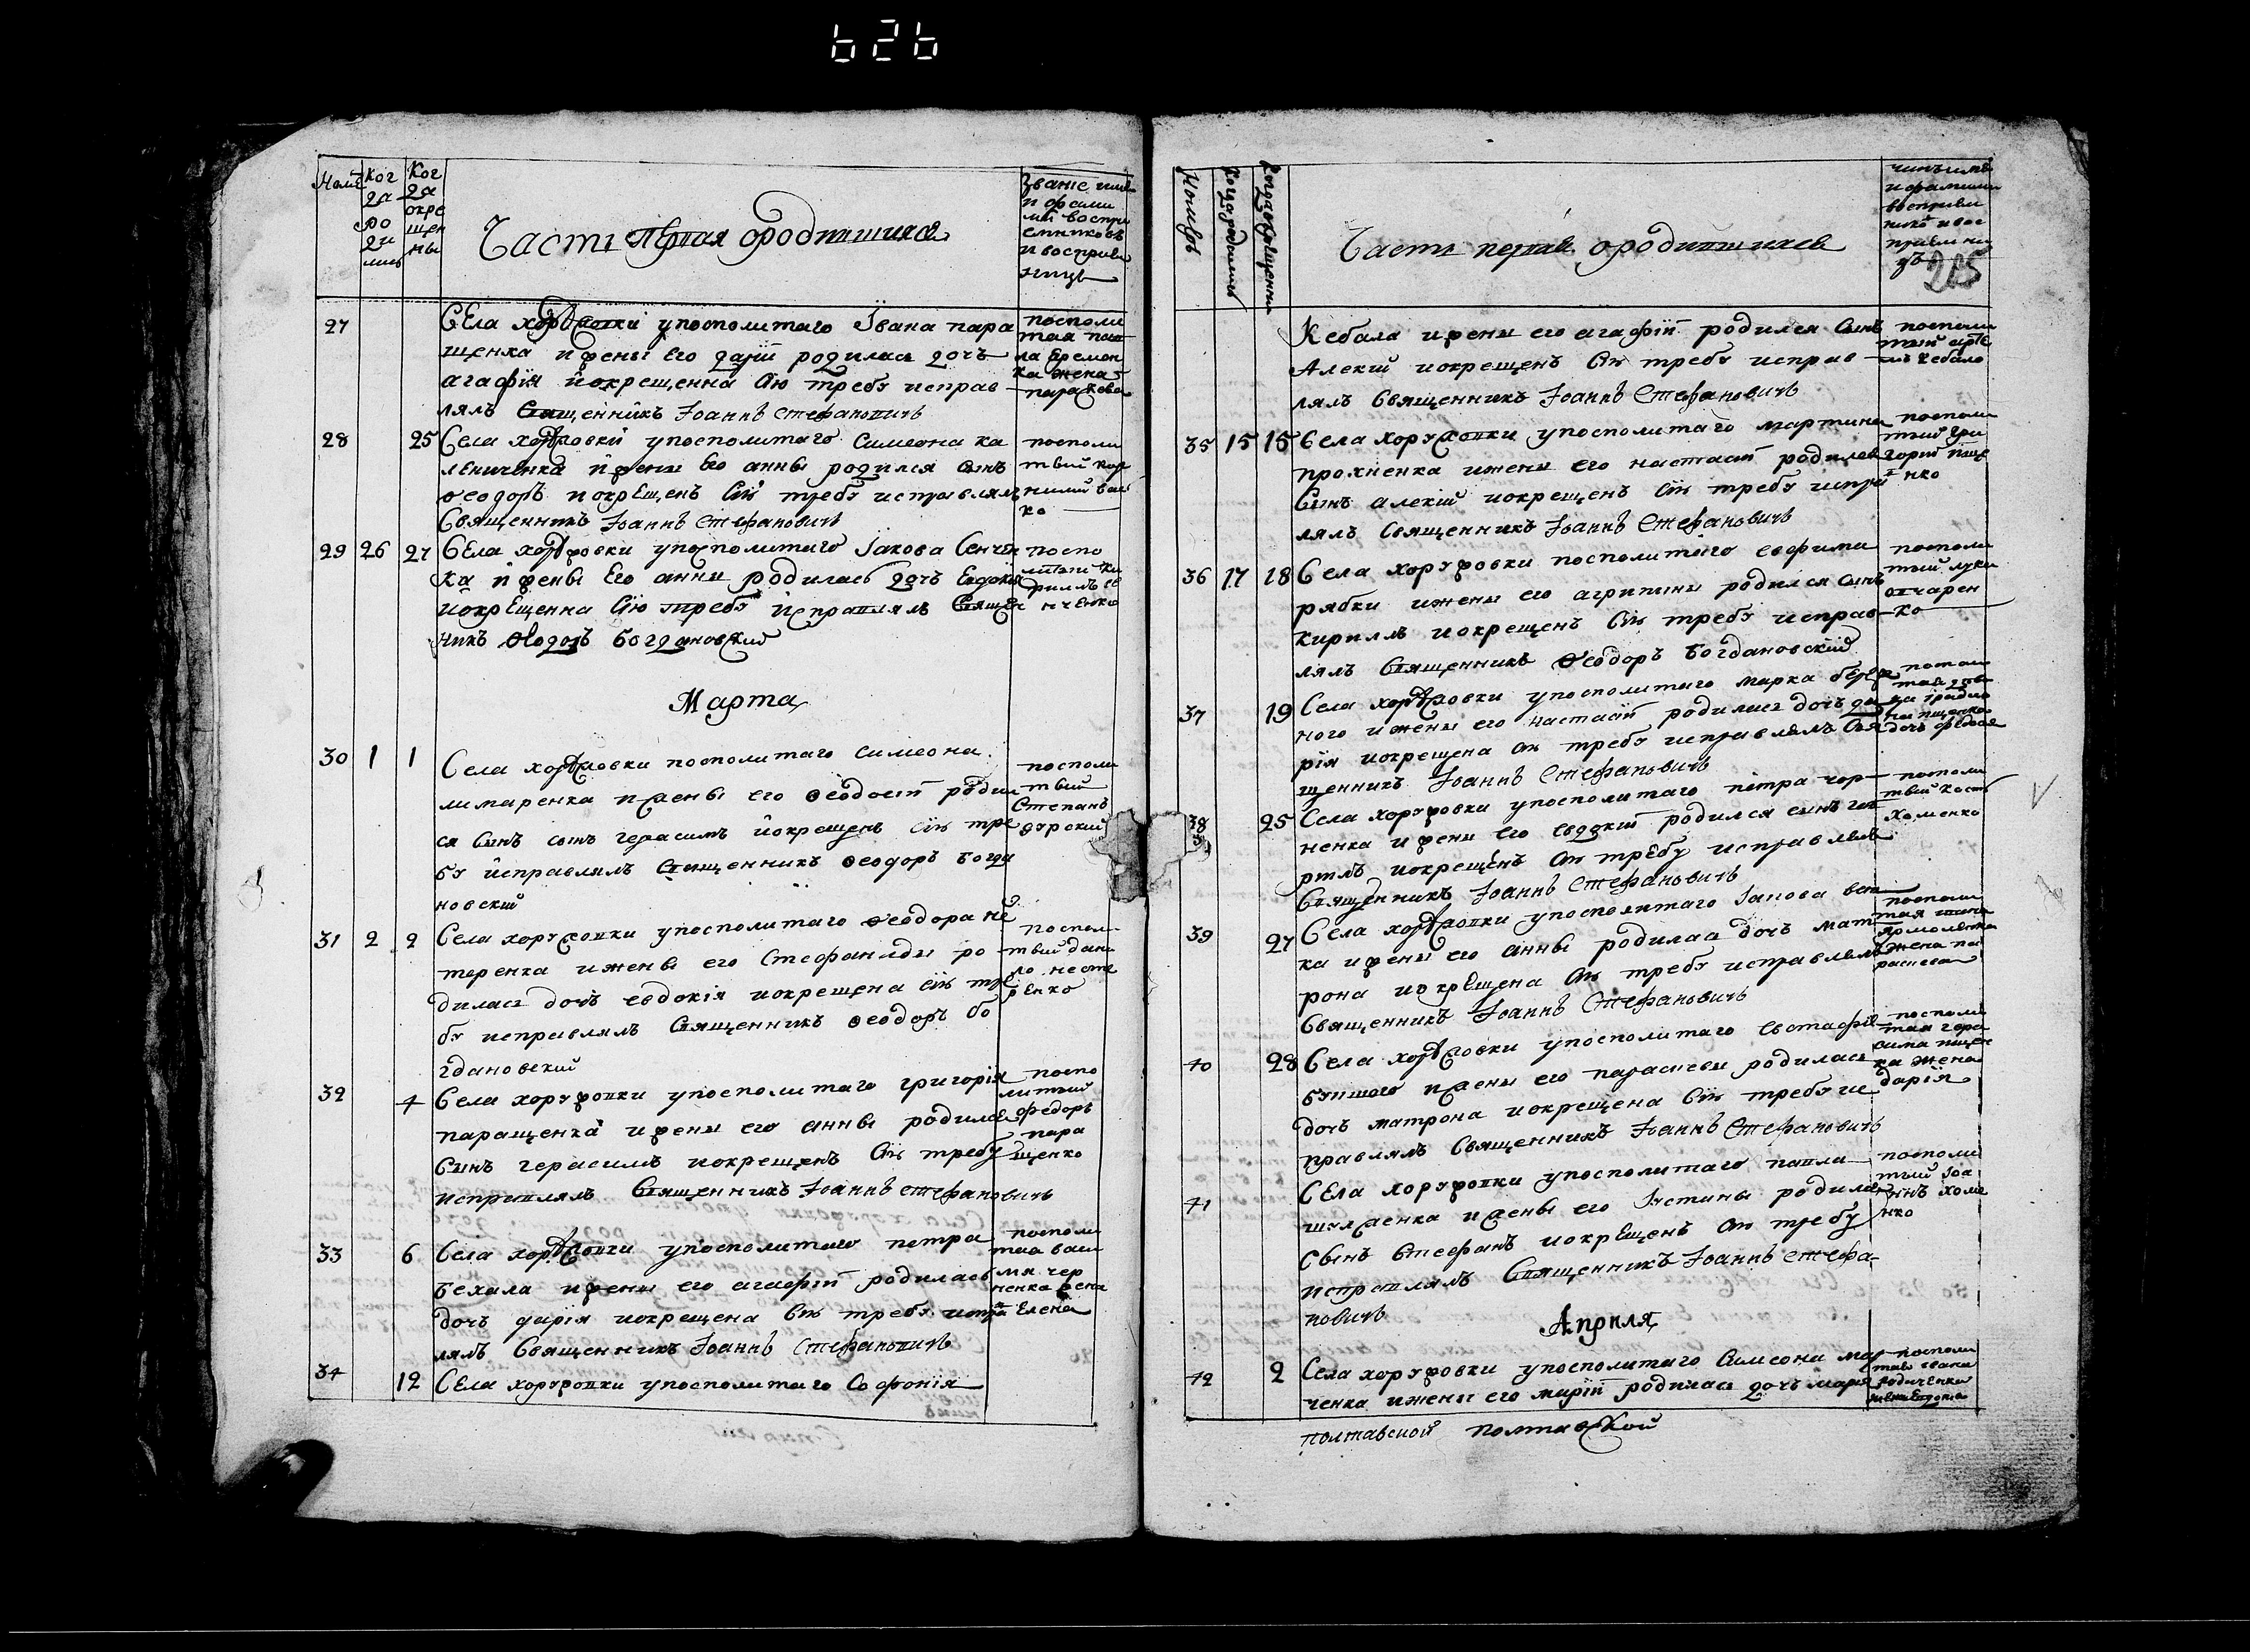 626
Номе
Ког да ро ди лись
Ког да окре щен ны
Часть первая ородившихся
Звание имя и фами лий воспри емников и восприе ницъ
27
Села хоружовки упосполитаго Ивана пара
щенка и жены его дарiи родилась дочъ
агафiя и окрещенна Сiю требу исправ
лялъ Священникъ Iоаннъ Стефановичъ
посполи
тая пав
ла Еремен
ка жена
параскева
28 25
Села хоружовки упосполитаго Симеона ка
лениченка и жены Его анны родился сынъ
Феодоръ и окрещенъ Сiю требу исправлялъ
Священникъ Iоаннъ Стефановичъ
посполи
тый кор
нилий
ко
29 26 27
Села хоружовки упосполитаго Iакова Сенчен
ка и жены Его анны родилась дочъ Евдокия
и окрещенна Сiю требу исправлялъ Священ
никъ Феодоръ Богдановский
поспо
литый ки
рилъ се
нченко
Марта
30 1 1
Села хоружовки посполитаго Симеона
лимаренка и жены его Феодосiи родил
ся Сынъ сынъ герасимъ и окрещенъ Сiю тре
бу исправлялъ Священникъ Феодоръ Богда
новский
посполи
тый
Степанъ
дурский
31 2 2
Села хоружовки упосполитаго Феодора не
теренка и жены его Стефаниды ро
дилась дочъ евдокiя и окрещена Сiю тре
бу исправлялъ Священникъ Феодоръ Бо
гдановский
посполи
тый дани
ло несте
ренко
32 4
Села хоружовки упосполитаго григорiя
паращенка и жены его анны родился
Сынъ герасимъ и окрещенъ Сiю требу
исправлялъ Священникъ Iоаннъ Стефановичъ
поспо
литый
федоръ
пара
щенко
33 6
Села хоружовки упосполитаго петра
Бехала и жены его агафiи родилась
дочъ дарiя и окрещена Сiю требу исправ
лялъ Священникъ Iоаннъ Стефановичъ
посполи
тая васи
ля чер
ненка жена
Елена
34 12
Села хоружовки упосполитаго Софонiя
Номеръ
Когда родились
Когда окрещенны
Часть первая ородившихся
чинъ имя и фамилии восприем никовъ и вос приемни цъ
205
Кебала и жены его агафiи родился Сынъ
Алексiй и окрещенъ Сiю требу исправ
лялъ Священникъ Iоаннъ Стефановичъ
посполи
тый арте
мъ Кебало
35 15 15
Села хоружовки упосполитаго мартина
прохненка и жены его настасiи родился
Сынъ алексiй и окрещенъ Сiю требу исправ
лялъ Священникъ Iоаннъ Стефановичъ
посполи
тый гри
горiй пще
нко
36 17 18
Села хоружовки посполитаго евфима
рябки и жены его агрипины родился Сынъ
кириллъ и окрещенъ Сiю требу исправ
лялъ Священникъ Феодоръ Богдановский
посполи
тый лука
овчарен
ко
37 19
Села хоружовки упосполитаго марка
ного и жены его настасiи родилась дочъ да
рiя и окрещена Сiю требу исправлялъ Свя
щенникъ Iоаннъ Стефановичъ
дочъ
38 25
Села хоружовки упосполитаго петра чор
ненка и жены его евдокiи родился сынъ
и окрещенъ Сiю требу исправлялъ
Священникъ Iоаннъ Стефановичъ
посполи
тый
Хоменко
39 27
Села хоружовки упосполитаго Iакова
ка и жены его анны родилась дочъ мат
рона и окрещена Сiю требу исправлялъ
Священникъ Iоаннъ Стефановичъ
посполи
тая
ярмоленка
жена па
раскева
40 28
Села хоружовки упосполитаго евстафiя
и жены его параскевы родилась
дочъ матрона и окрещена Сiю требу ис
правлялъ Священникъ Iоаннъ Стефановичъ
посполи
тая гера
сима пщен
ка жена
дарiя
41
Села хоружовки упосполитаго павла
шулженка и жены его Iустины родился
Сынъ Стефанъ и окрещенъ Сiю требу
исправлялъ Священникъ Iоаннъ Стефа
новичъ
посполи
тый Iоа
ннъ хоме
нко
Априля
42 2
Села хоружовки упосполитаго Симеона мар
ченка и жены его марiи родилась дочъ марiя
посполи
тая ивана
жена Евдокия
полтавской полтавской